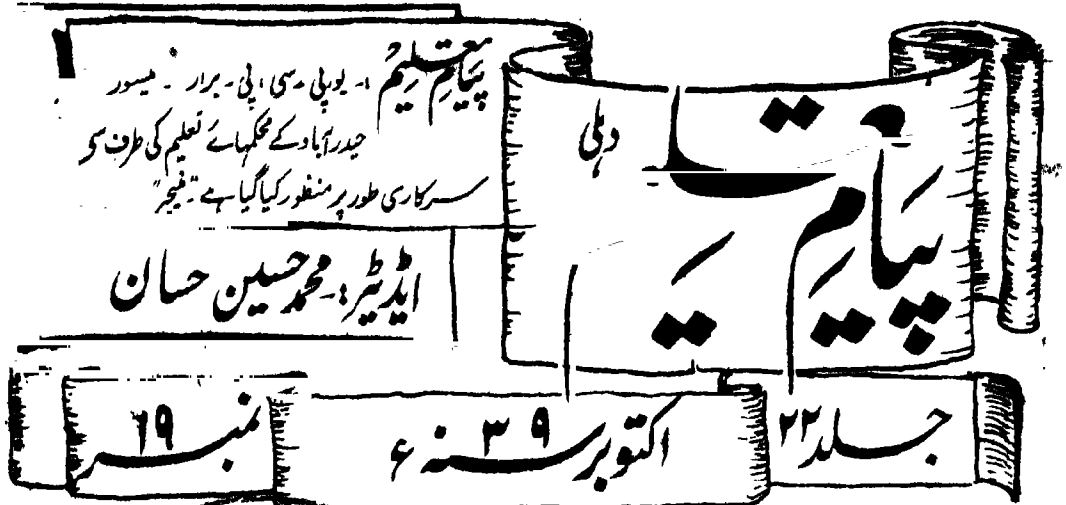 پیام
دہلی
پیامِ تعلیم :۔ یوپی ۔ سی ،پی ۔ برار ۔ میسور
حیدرآباد کے محکمہائے تعلیم کی طرف سے
سرکاری طور پر منظور کیا گیا ہے ۔ "منیجر"
ایڈیٹر :۔ محمد حسین حسان
جلد ۲۲ اکتوبر سنہ ۳۹ ء نمبر ۱۹